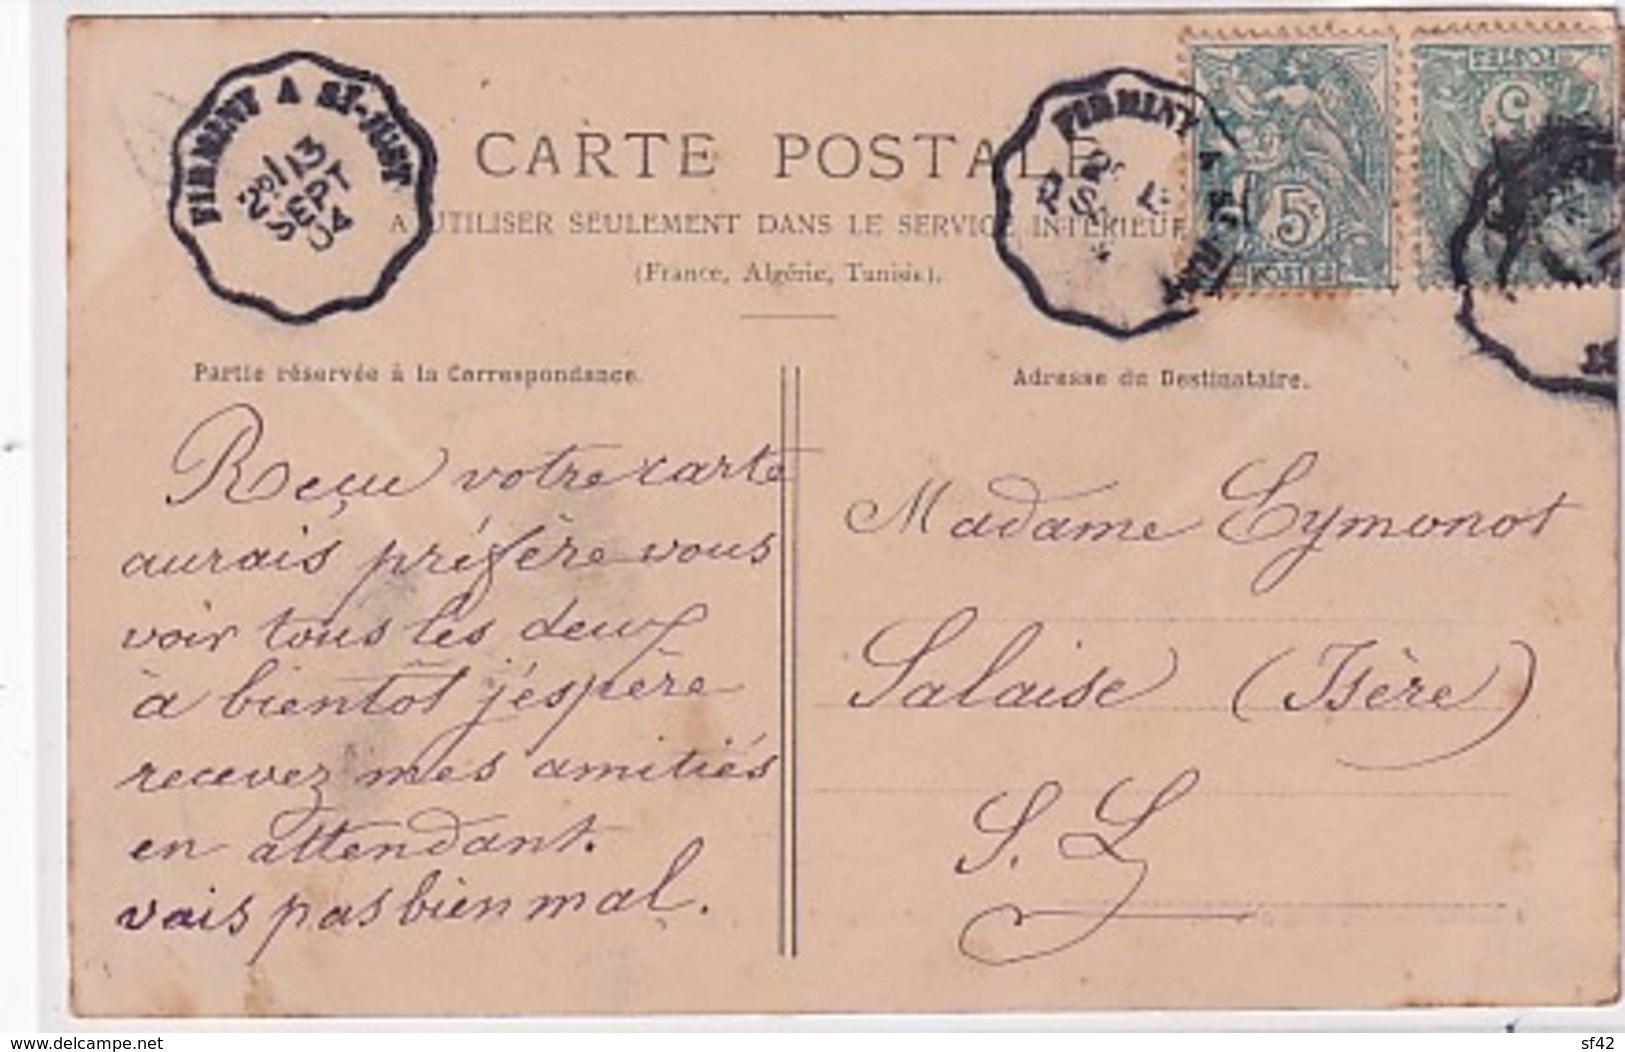 FIRMINY A ST-JUST
2º/13
SEPT
04
CARTE POSTALE
A UTILISER SEULEMENT DANS LE SERVICE INTÉRIEUR
(France, Algérie, Tunisie).
FIRMINY
5
POSTES
5
POSTES
Partie réservée à la Correspondance.
Adresse du Destinataire.
Reçu votre carte
aurais préfère vous
voir tous les deux
à bientôt j'éspère
recevez mes amitiés
en attendant.
vais pas bien mal.
Madame Eymonot
Salaise (Isère)
S. L
www.delcampe.net
sf42